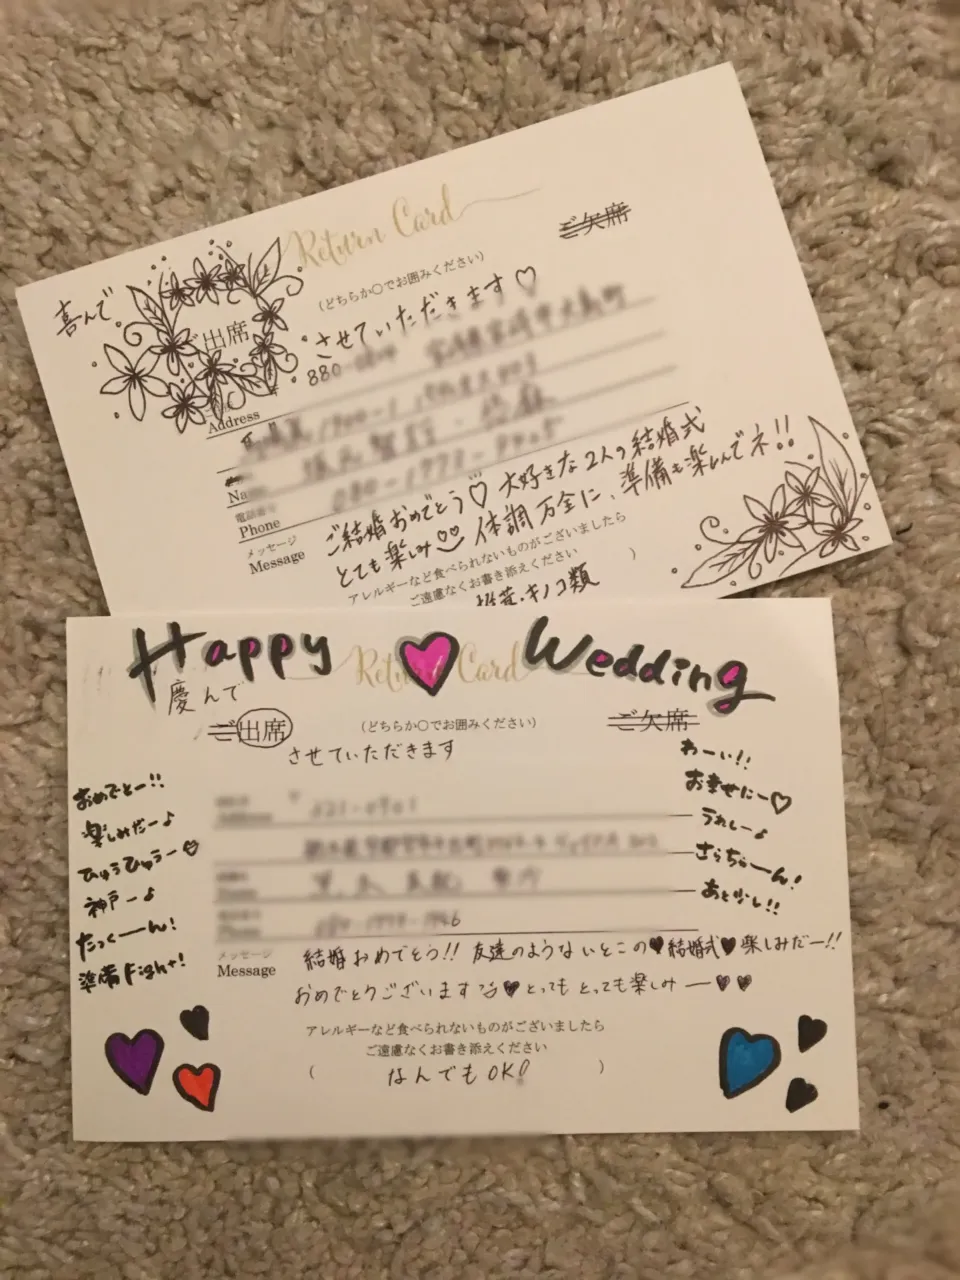 Return Card
ご欠席
(どちらか○でお囲みください)
喜んで。
ご出席
させていただきます♡
880-
Address
Na
電話番号
Phone
メッセージ
Message
ご結婚おめでとう♡ 大好きな2人の結婚式
とても楽しみ♡♡ 体調万全に、準備も楽しんでネ!!
アレルギーなど食べられないものがございましたら
ご遠慮なくお書き添えください
)
キノコ類
Happy ♥ Wedding
Return Card
慶んで
ご出席
(どちらか○でお囲みください)
ご欠席
させていただきます
おめでとー!!
楽しみだー♪
ひゅうひゅうー♡
神戸ー♪
たっくーん!
準備Fight!
わーい!!
お幸せにー♡
うれしー♪
さらちゃーん!
あと少し!!
メッセージ
Message
結婚おめでとう!! 友達のようないとこの♥結婚式♥楽しみだー!!
おめでとうございます♥とってもとっても楽しみー♥♥
アレルギーなど食べられないものがございましたら
ご遠慮なくお書き添えください
( なんでもOK! )